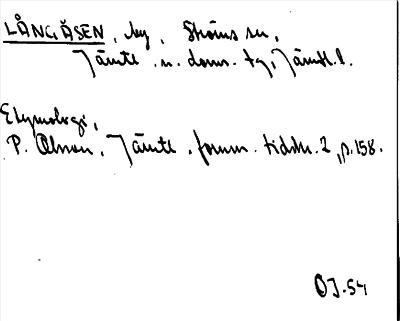 LÅNGÅSEN, by, Ströms sn,
Jämtl. n. doms. tg, Jämtl. l.
Etymologi,
P. Olsson, Jämtl. fornm. tidskr. 2, p. 158.
OJ. 54